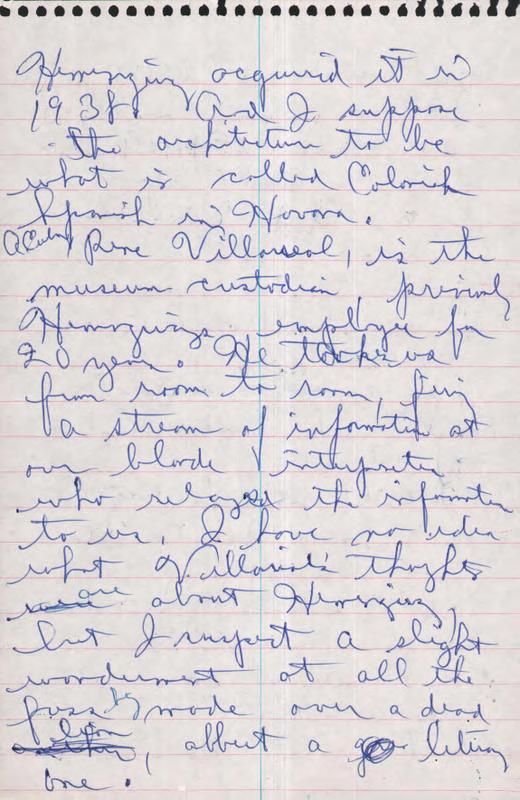 Hemingway acquired it in
1938. And I suppose
the architecture to be
what is called Colonial
Spanish in Havana.
A Cuban, Rene Villarreal, is the
museum custodian, previously
Hemingway's employee for
20 years. He takes us
from room to room, firing
a stream of information at
our blonde interpreter
who relayed the information
to us. I have no idea
what Villarreal's thoughts
are about Hemingway,
but I suspect a slight
wonderment at all the
fuss made over a dead
lion, albeit a literary
one.